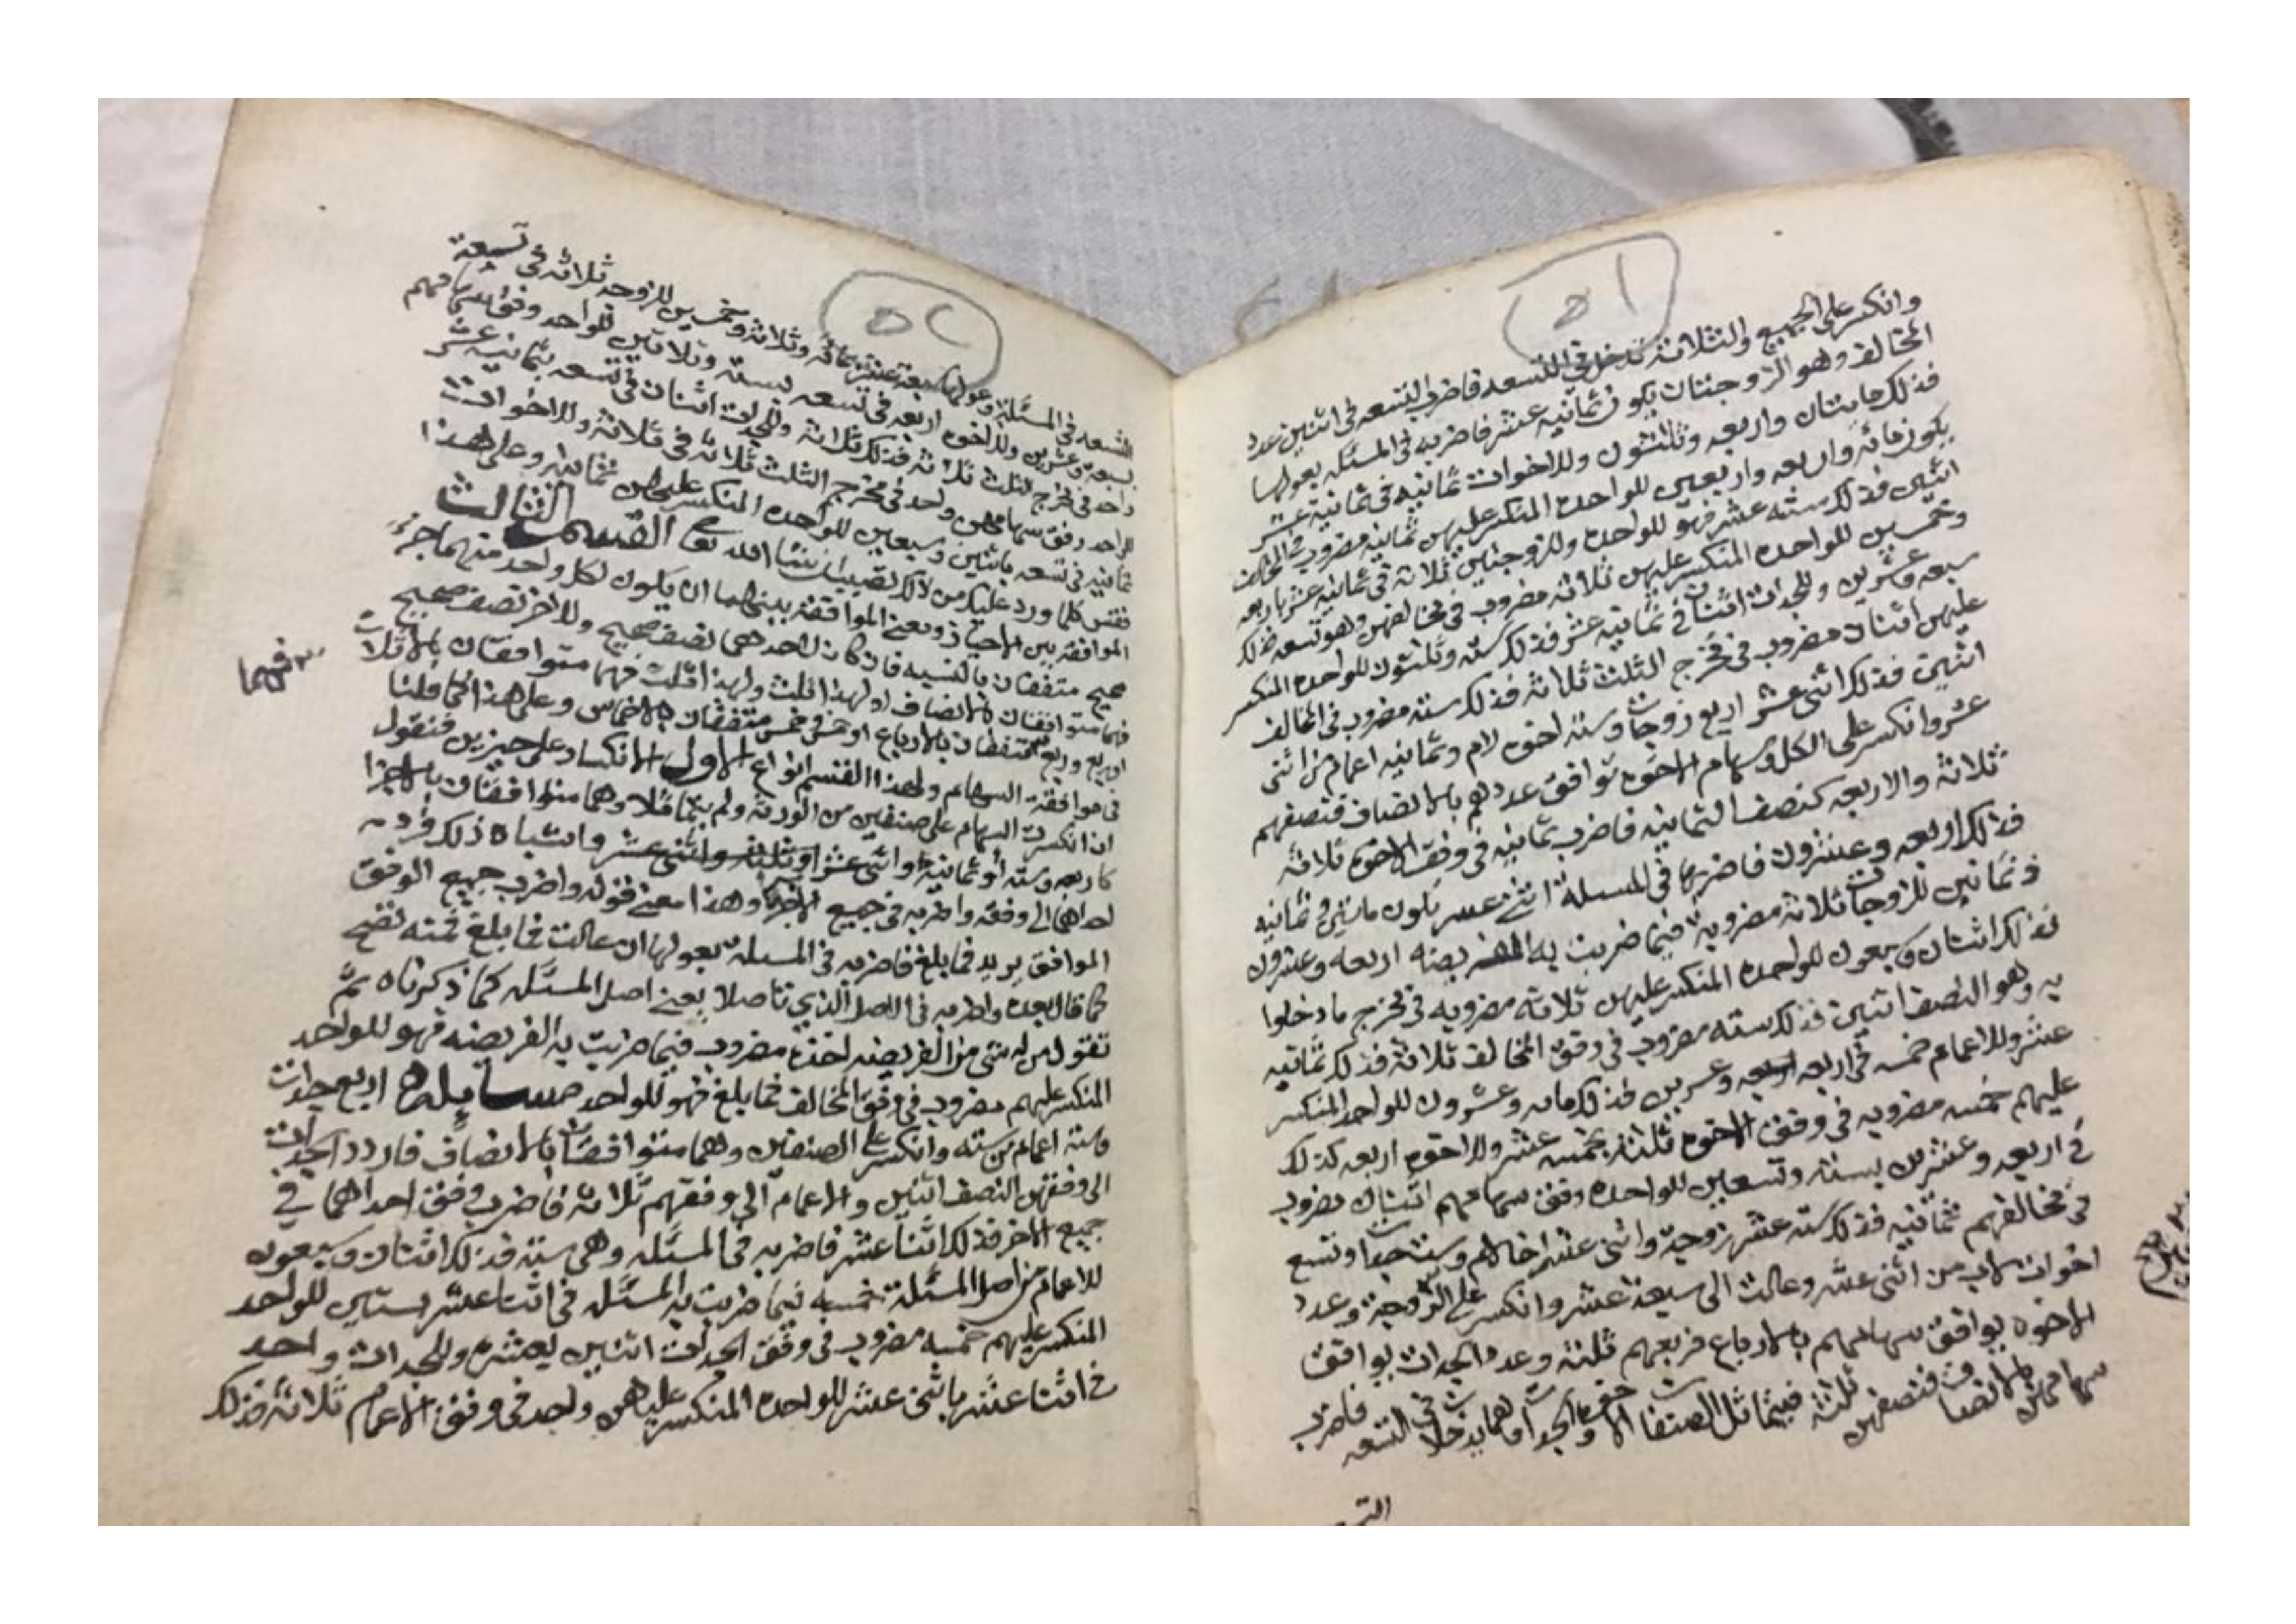 ٥١
وانكسر على الجميع والثلاثة تدخل في التسعه فاضرب التسعه في اثنين عدد
المخالف وهو الزوجتان يكون ثمانيه عشر فاضربه في المسئله بعولها
فذلك مايتان واربعه وثلثون وللاخوات ثمانيه في ثمانية عشر
يكون مائه واربعه واربعين للواحده المنكسر عليهن ثمانيه مضروب في المخالف
اثنين فذلك سته عشر فهو للواحده وللزوجتين ثلاثة في ثمانيه عشر باربعه
وخمسين للواحده المنكسر عليهن ثلاثه مضروب في مخالفهن وهو تسعه فذلك
سبعه وعشرين وللجدات اثنتان في ثمانيه عشر فذلك سته وثلثون للواحده المنكسر
عليهن اثنتان مضروب في مخرج الثلث ثلاثه فذلك سته مضروب في المخالف
اثنين فذلك اثنى عشر اربع زوجات وسته اخوه لام وثمانيه اعمام من اثنى
عشر وانكسر على الكل وسهام الاخوه توافق عددهم بالانصاف فتصفهم
ثلاثة والاربعه كنصف الثمانيه فاضرب ثمانيه في وفق الاخوه ثلاثة
فذلك اربعه وعشرون فاضربها في المسئلة اثنى عشر يكون مايتين وثمانيه
وثمانين للزوجات ثلاثة مضروبة فيما ضربت به الفريضه اربعه وعشرون
فذلك اثنتان وسبعون للواحده المنكسر عليهن ثلاثه مضروبه في مخرج ما دخلوا
به وهو النصف اثنين فذلك سته مضروب في وفق المخالف ثلاثة فذلك ثمانيه
عشر وللاعمام خمسه في اربعه وعشرين فذلك مايه وعشرون للواحد المنكسر
عليهم خمسه مضروبه في وفق الاخوه ثلثة بخمسه عشر وللاخوه اربعه كذلك
في اربعه وعشرين بسته وتسعين للواحده وفق سهامهم اثنتان مضروب
في مخالفهم ثمانيه فذلك سته عشر زوجة واثنى عشر اخا لام وست جدات وتسع
اخوات لاب من اثنى عشر وعالت الى سبعة عشر وانكسر على الزوجة وعدد
الاخوه يوافق سهامهم بالارباع فربعهم ثلثه وعدد الجدات يوافق
سهامهن بالانصاف فنصفهن ثلثه فيتماثل الصنفان الاخوه والجدات وهما يدخلان في التسعه فاضرب
التسعه
٥٢
التسعه في المسئلة وعولها سبعة عشر بمائه وثلاثة وخمسين للزوجه ثلاثه في تسعة
بسبعة وعشرين وللاخوه اربعه في تسعه بستة وثلاثين للواحد وفق سهامهم
واحد في مخرج الثلث ثلاثه فذلك ثلاثة وللجدات اثنتان في تسعه بثمانيه عشر
للواحد وفق سهامهن واحد في مخرج الثلث ثلاثه في ثلاثة وللاخوات
ثمانيه في تسعه باثنين وسبعين للواحده المنكسر عليهن ثمانيه وعلى هذا
فقس كلما ورد عليك من ذلك تصيب ان شا الله تعالى القسم الثالث
الموافقه بين الاحياز ومعنى الموافقة بينهما ان يكون لكل واحد منهما جزء
صحيح متفقان بالنسبه فان كان لاحدهما نصف صحيح وللاخر نصف صحيح
فهما متوافقان بالانصاف او لهذا ثلث ولهذا ثلث فهما متوافقان بالاثلاث
او ربع وربع متفقان بالارباع او خمس وخمس متفقان بالاخماس وعلى هذا كما قلنا
في موافقة السهام ولهذا القسم انواع الاول الانكسار على حيزين فنقول
اذا انكسرت السهام على صنفين من الورثة ولم يتماثلا وهما متوافقان بالاجزا
كاربعه وسته او ثمانية واثنى عشر واشباه ذلك فرد
احداهما الى وفقه واضربه في جميع الاخر وهذا معنى قوله واضرب جميع الوفق
الموافق يريد فما بلغ فاضربه في المسئله بعولها ان عالت فما بلغ فمنه تصح
كما قال بعده واضربه في الاصل الذي تاصلا يعنى اصل المسئله كما ذكرناه ثم
تقول من له شي من الفريضه اخذه مضروب فيما ضربت به الفريضه فهو للواحد
المنكسر عليهم مضروب في وفق المخالف فما بلغ فهو للواحد مسايله اربع جدات
وستة اعمام من سته وانكسر على الصنفين وهما متوافقان بالانصاف فاردد الجدات
الى وفقهن النصف اثنين والاعمام الى وفقهم ثلاثه فاضرب وفق احداهما في
جميع الاخر فذلك اثنا عشر فاضربه في المسئله وهي سته فذلك اثنتان وسبعون
للاعمام من اصل المسئلة خمسه فيما ضربت به المسئله في اثنا عشر بستين للواحد
المنكسر عليهم خمسه مضروب في وفق الجدات اثنين بعشره وللجدات واحد
في اثنا عشر باثنى عشر للواحده المنكسر عليهن واحد في وفق الاعمام ثلاثه فذلك
فهما